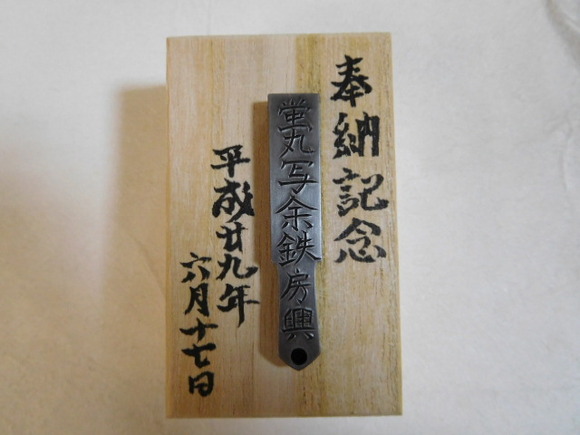 奉納記念
蛍丸写余鉄房興
平成廿九年
六月十七日